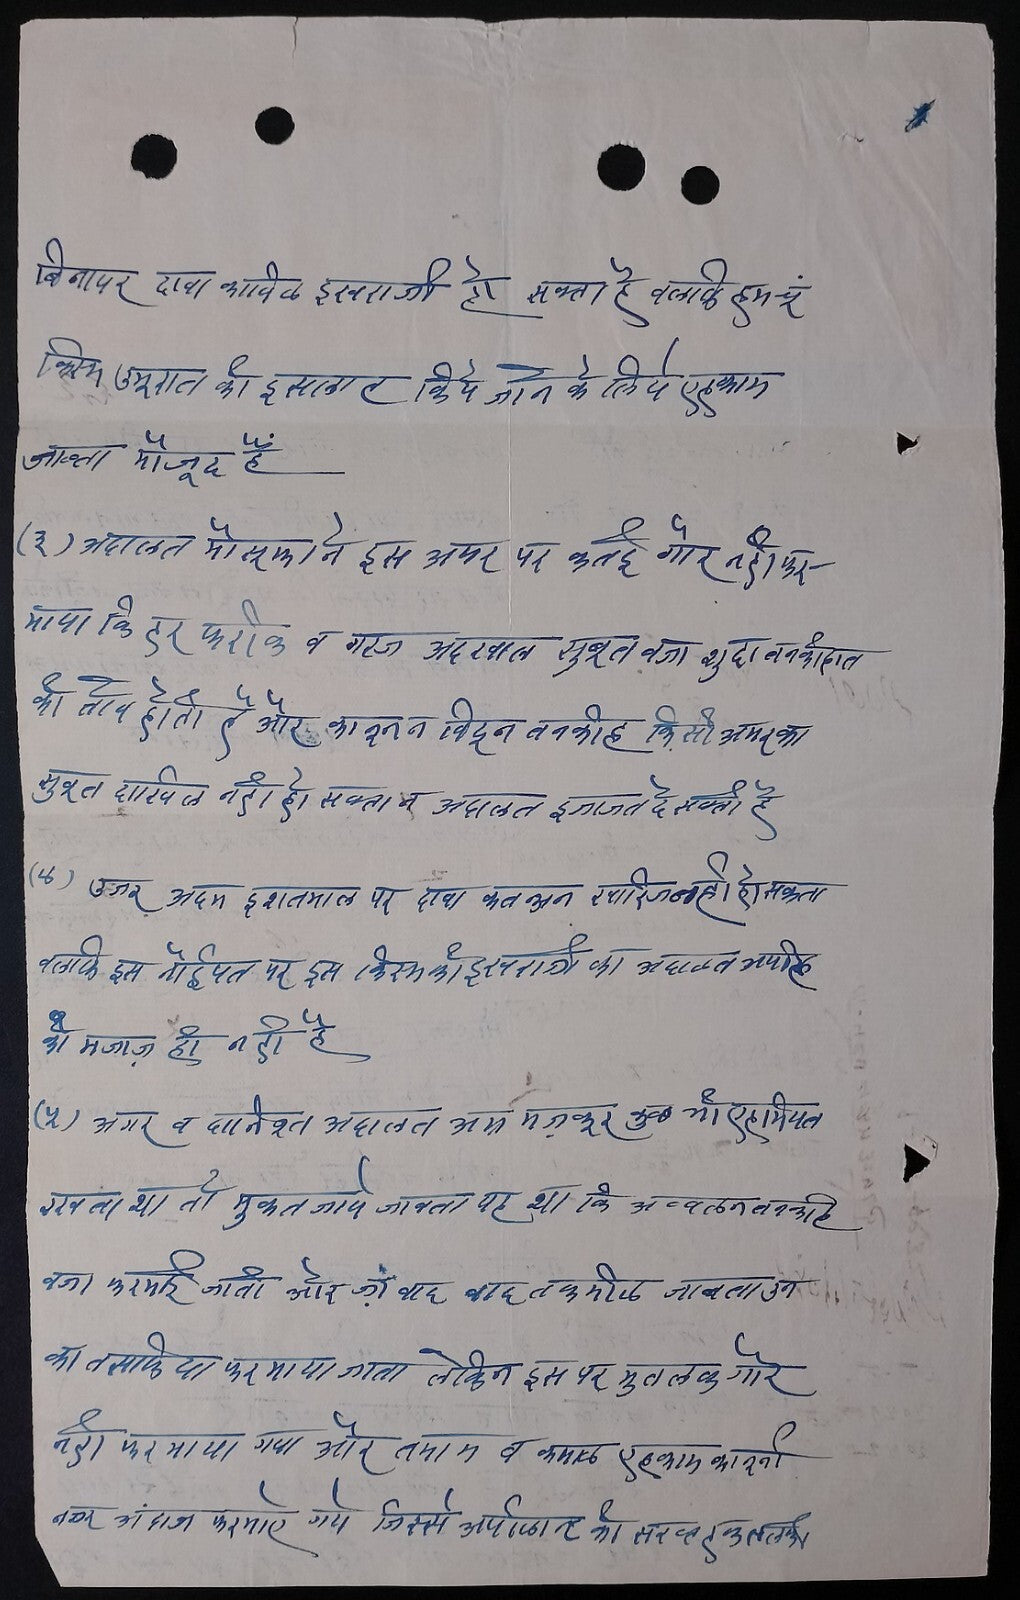 बिनापर दावा काबिल इखराजी हो सक्ता है बलकि हमचूं
किस्म उमूरात की इसलाह किये जाने के लिये एहकाम
जाब्ता मौजूद हैं
(३) अदालत मौसूफाने इस अमर पर कतई गौर नही फर-
माया कि हर फरीक व गरज अदखाल सुबूत वजा शुदा तनकीहात
की ताबे होती है और कानूनन बिदून तनकीह किसी अमर का
सुबूत दाखिल नही हो सक्ता न अदालत इजाजत दे सक्ती है
(४) उजर अदम इशतमाल पर दावा कतअन खारिज नही हो सकता
बलकि इस नोईयत पर इस किस्म की इखराजी का अदालत अपील
को मजाज़ ही नही है
(५) अगर व दानिश्त अदालत अमर मज़कूर कुछ भी एहमियत
रखता था तो मुकतजाये जाबता यह था कि अव्वलन तनकीह
वजा फरमाई जाती और ज़ां बाद बाद तकमील जाबता उन
का तसफिया फरमाया जाता लेकिन इस पर मुतलक गौर
नही फरमाया गया और तमाम व कमाल एहकाम कानूनी
नजर अंदाज फरमाऐ गये जिस्से अपीलान्ट की सख्त हकतलफी